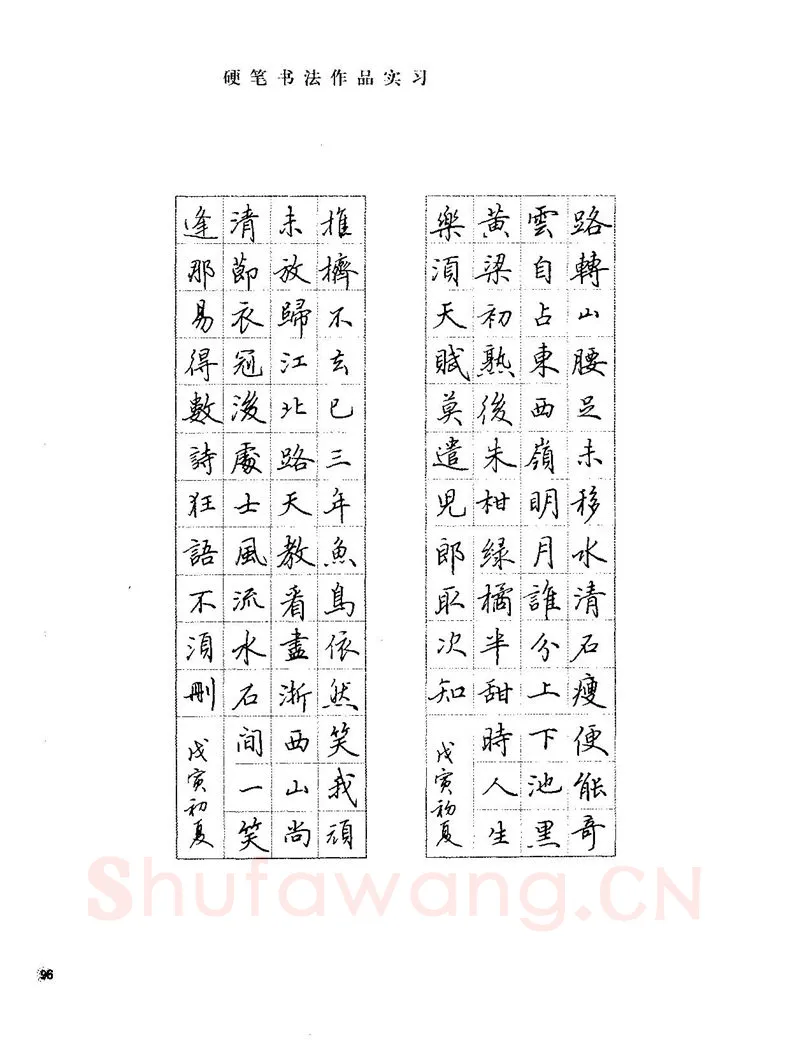 硬笔书法作品实习
路轉山腰足未移水清石瘦便能奇
雲自占東西嶺明月誰分上下池黑
黄梁初熟後朱柑綠橘半甜時人生
樂須天賦莫遣兒郎取次知
戊寅初夏
推擠不去已三年魚鳥依然笑我頑
未放歸江北路天教看盡浙西山尚
清節衣冠後處士風流水石間一笑
逢那易得數詩狂語不須刪
戊寅初夏
Shufawang.CN
96